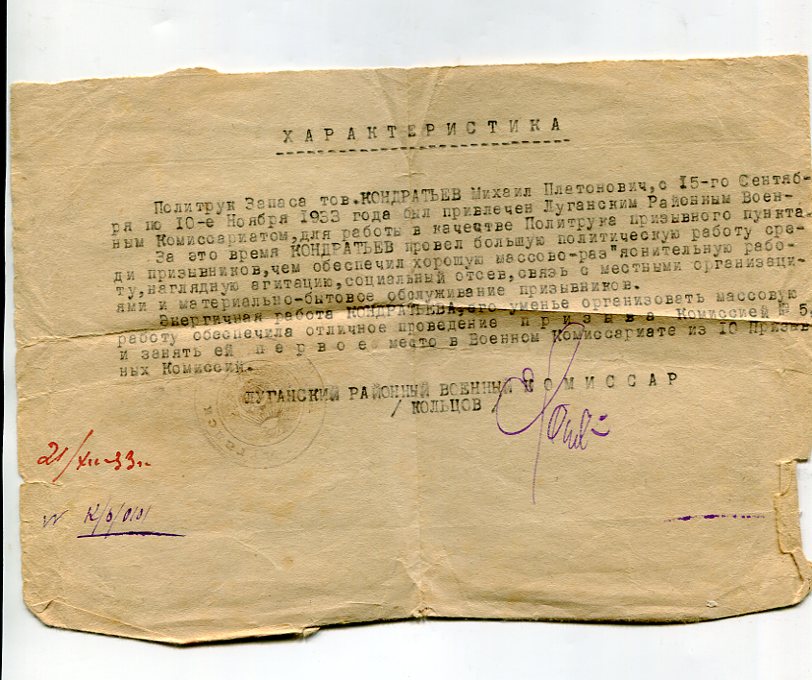 ХАРАКТЕРИСТИКА
Политрук Запаса тов.КОНДРАТЬЕВ Михаил Платонович, с 15-го Сентяб-
ря по 10-е Ноября 1933 года был привлечен Луганским Районным Воен-
ным Комиссариатом, для работы в качестве Политрука призывного пункта.
За это время КОНДРАТЬЕВ провел большую политическую работу сре-
ди призывников, чем обеспечил хорошую массово-раз"яснительную рабо-
ту, наглядную агитацию, социальный отсев, связь с местными организаци-
ями и материально-бытовое обслуживание призывников.
Энергичная работа КОНДРАТЬЕВА, его уменье организовать массовую
работу обеспечила отличное проведение призыва Комиссией № 5,
и занять ей первое место в Военном Комиссариате из 10 Призыв
ных Комиссий.
ЛУГАНСКИЙ РАЙОННЫЙ ВОЕННЫЙ КОМИССАР
/ КОЛЬЦОВ /
21/XII-33г.